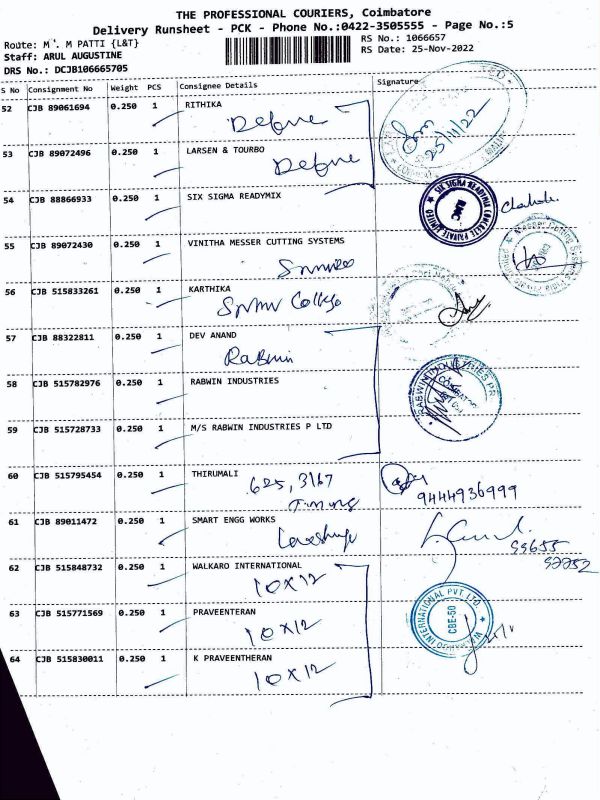 THE PROFESSIONAL COURIERS, Coimbatore
Delivery Runsheet - PCK - Phone No.:0422-3505555 - Page No.:5
Route: M . M PATTI {L&T}
RS No.: 1066657
Staff: ARUL AUGUSTINE
RS Date: 25-Nov-2022
DRS No.: DCJB106665705
S No Consignment No Weight PCS Consignee Details Signature
52 CJB 89061694 0.250 1 RITHIKA
25/11/22
53 CJB 89072496 0.250 1 LARSEN & TOURBO
54 CJB 88866933 0.250 1 SIX SIGMA READYMIX
SIX SIGMA READYMIX CONCRETE PRIVATE LIMITED
55 CJB 89072430 0.250 1 VINITHA MESSER CUTTING SYSTEMS
56 CJB 515833261 0.250 1 KARTHIKA
College
57 CJB 88322811 0.250 1 DEV ANAND
Rabwin
58 CJB 515782976 0.250 1 RABWIN INDUSTRIES
RABWIN INDUSTRIES
59 CJB 515728733 0.250 1 M/S RABWIN INDUSTRIES P LTD
60 CJB 515795454 0.250 1 THIRUMALI
625, 3/67
9444936999
61 CJB 89011472 0.250 1 SMART ENGG WORKS
99655
92252
62 CJB 515848732 0.250 1 WALKARO INTERNATIONAL
10x12
WALKARO INTERNATIONAL PVT. LTD.
CBE-50
63 CJB 515771569 0.250 1 PRAVEENTERAN
10x12
64 CJB 515830011 0.250 1 K PRAVEENTHERAN
10x12